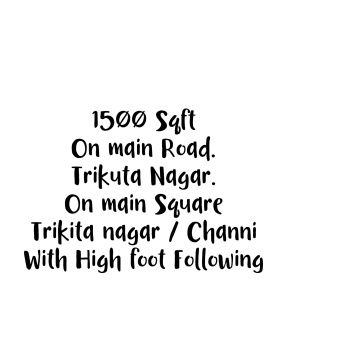 1500 Sqft
On main Road.
Trikuta Nagar.
On main Square
Trikita nagar / Channi
With High foot Following